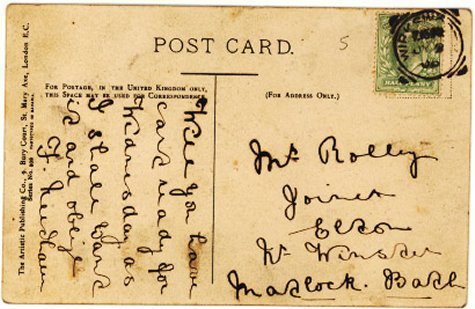 POST CARD.
5
FOR POSTAGE, IN THE UNITED KINGDOM ONLY,
THIS SPACE MAY BE USED FOR CORRESPONDENCE
(FOR ADDRESS ONLY.)
The Artistic Publishing Co., 9, Bury Court, St. Mary Axe, London E.C.
Series No.
Will you have
cart ready for
Wednesday as
I shall want
it and oblige
J. Needham
Mr Rolley
Joiner
Elton
Nr Winster
Matlock. Bath